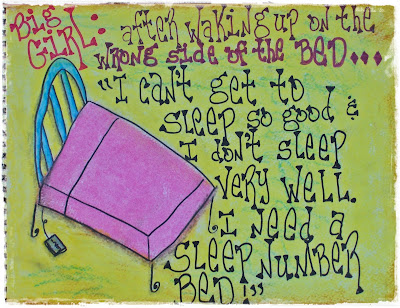 Big GIRL: after waking up on the
wrong side of the BED...
"I can't get to
sleep so good &
I don't sleep
very well.
I need a
sleep number
BED!"